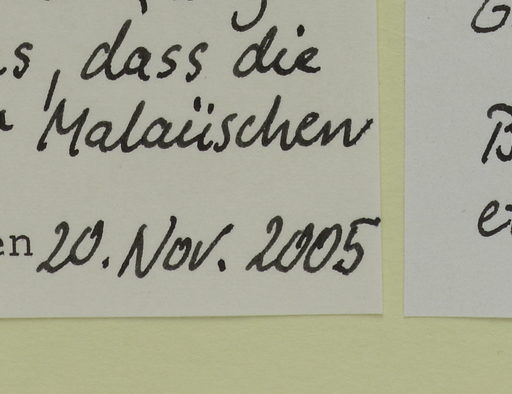 , dass die
Malaiischen
en 20. Nov. 2005